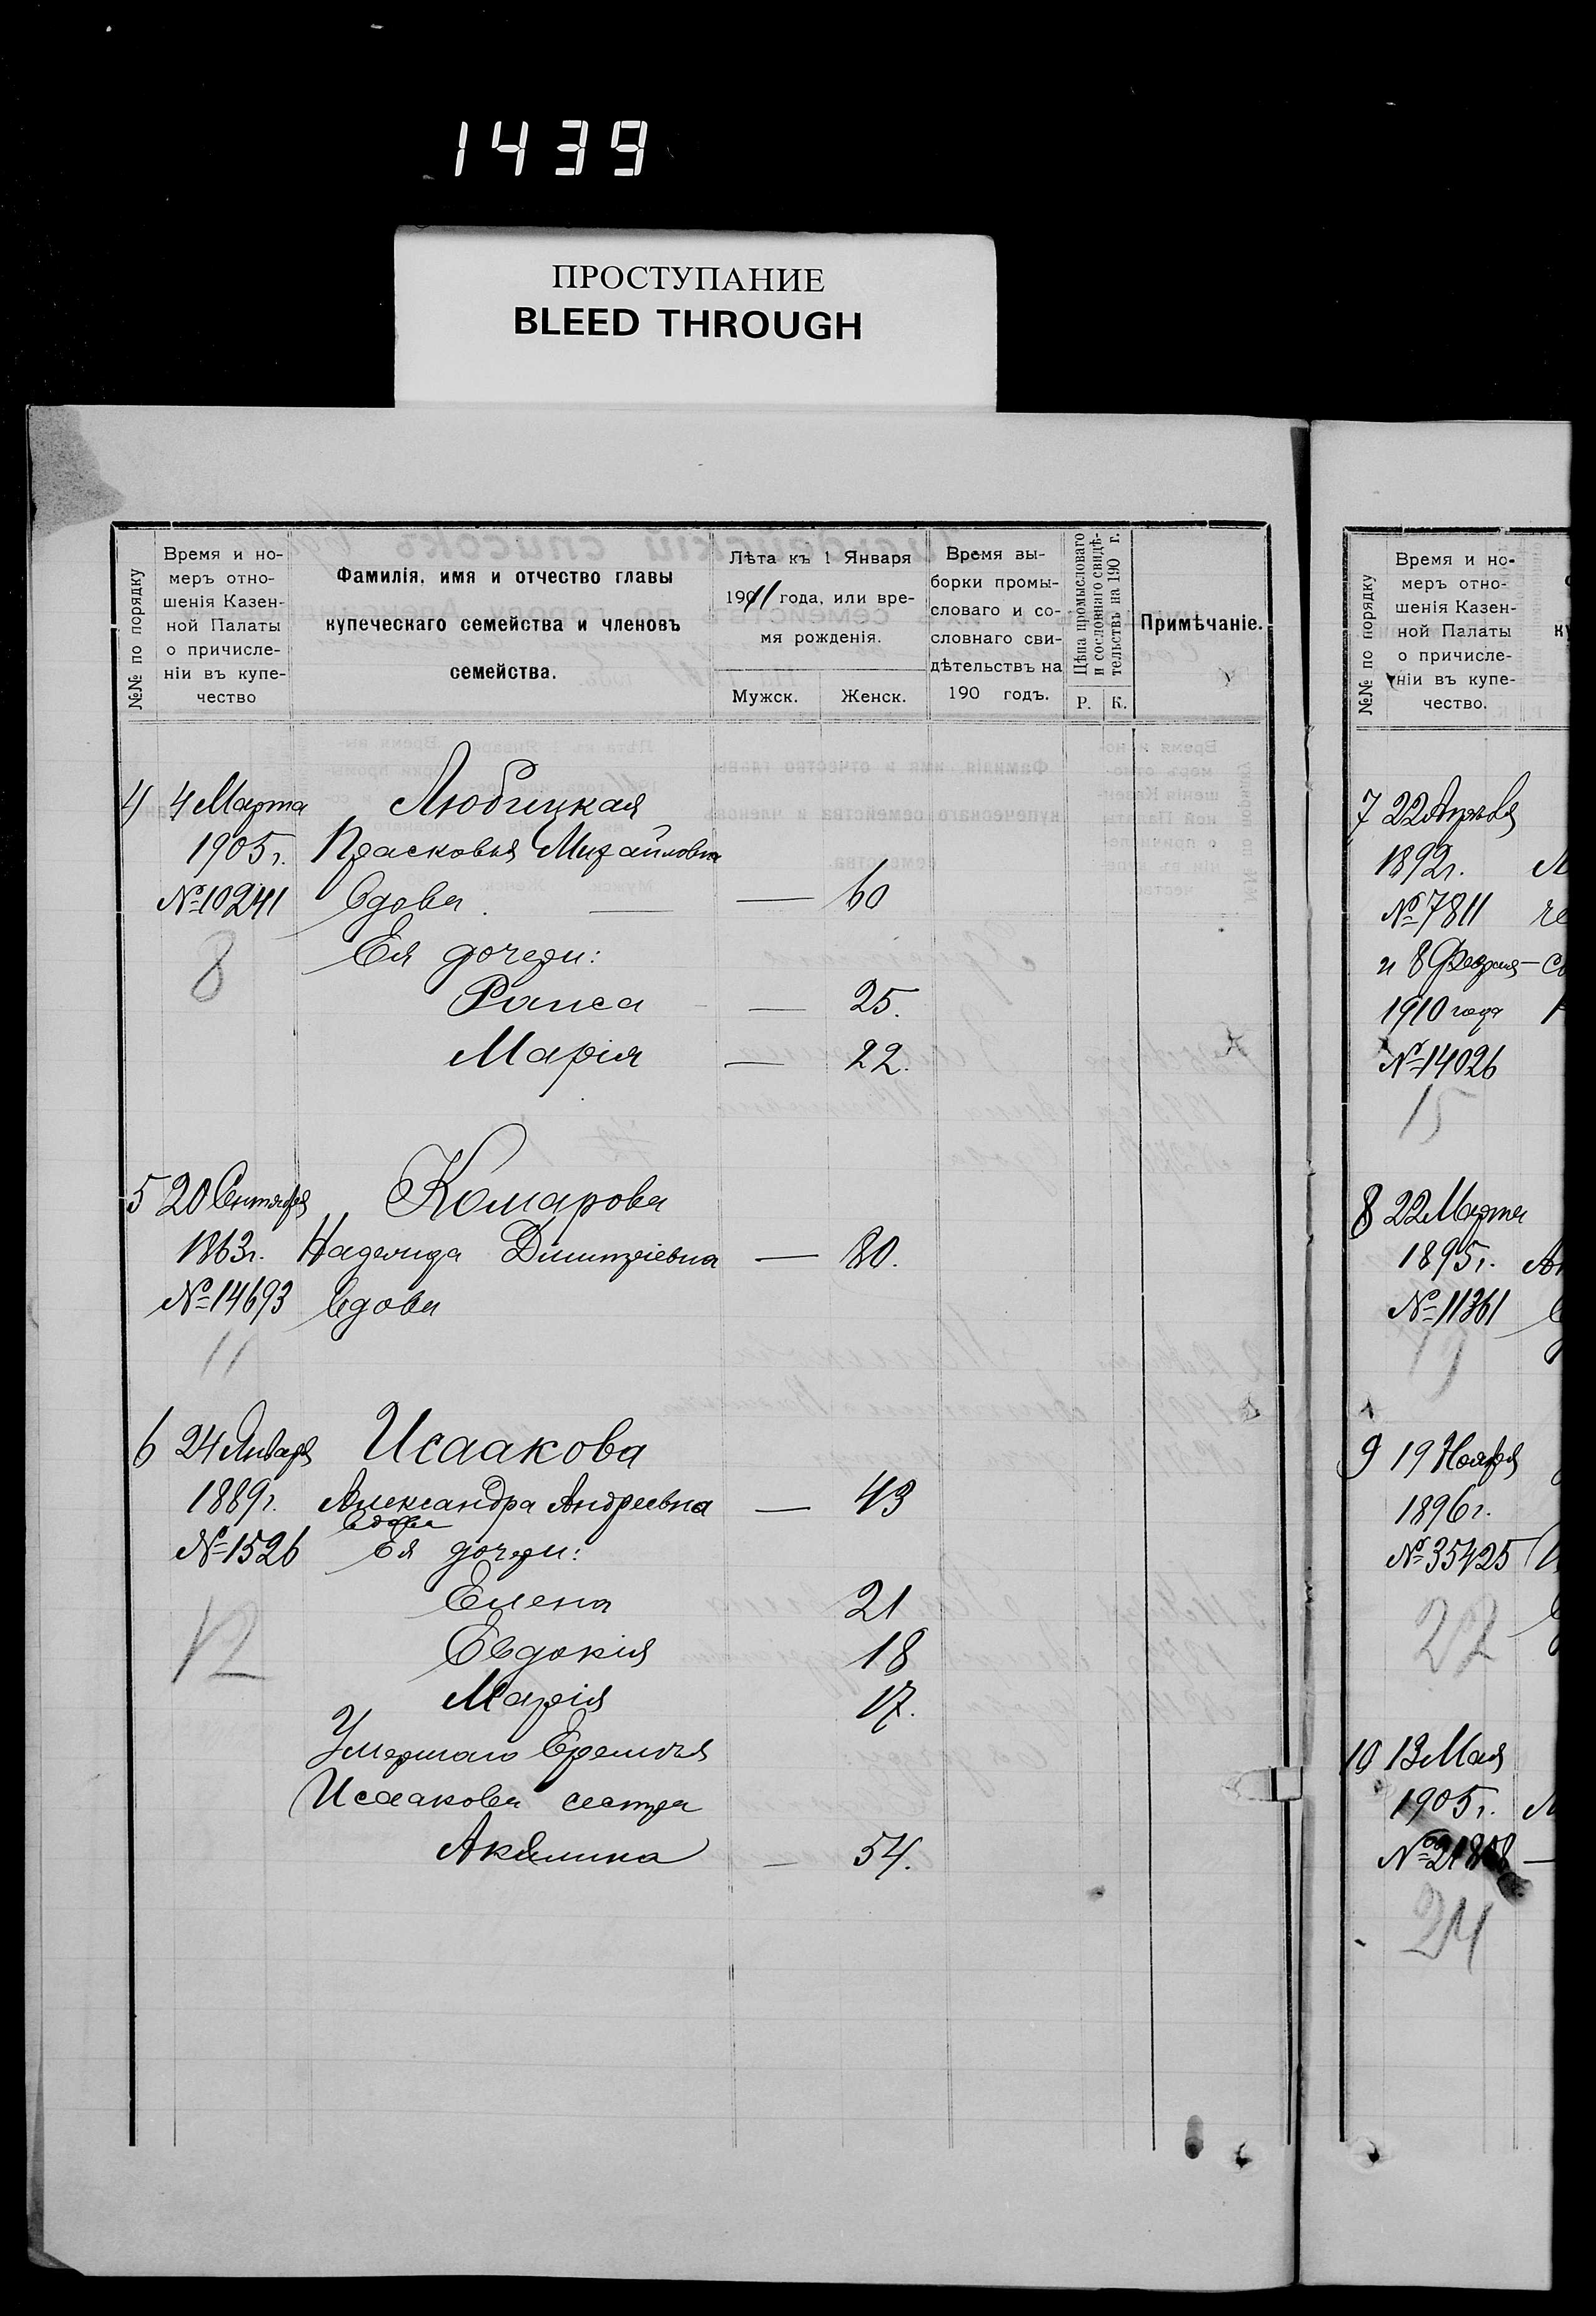 1439
ПРОСТУПАНИЕ
BLEED THROUGH
№№ по порядку
Время и но-
меръ отно-
шенія Казен-
ной Палаты
о причисле-
ніи въ купе-
чество
Фамилія, имя и отчество главы
купеческаго семейства и членовъ
семейства.
Лѣта къ 1 Января
1911 года, или вре-
мя рожденія.
Мужск. Женск.
Время вы-
борки промы-
словаго и со-
словнаго сви-
дѣтельствъ на
190 годъ.
Цѣна промысловаго
и сословнаго свидѣ-
тельствъ на 190 г.
Р. К.
Примѣчаніе.
4 4 Марта Любицкая
1905 г. Прасковья Михайловна
№ 10241 Вдова. — 60
8 Ея дочери:
Раиса — 25.
Марія — 22.
5 20 Сентября Комарова
1863 г. Надежда Димитріевна — 80.
№ 14693 Вдова
11
6 24 Января Исаакова
1889 г. Александра Андреевна — 43
вдова
№ 1526 Ея дочери:
Елена 21
12 Евдокія 18
Марія 17.
Умершаго Еремѣя
Исаакова сестра
Акилина — 54.
№№ по порядку
Время и но-
меръ отно-
шенія Казен-
ной Палаты
о причисле-
ніи въ купе-
чество.
7 22 Апрѣля
1892 г.
№ 7811
и 8 Февраля
1910 года
№ 14026
15
8 22 Марта
1895 г.
№ 11361
19
9 19 Ноября
1896 г.
№ 35425
22
10 13 Мая
1905 г.
24